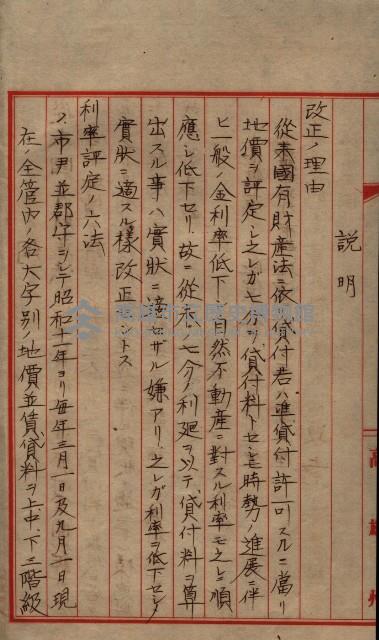 説明
改正ノ理由
從来國有財産法ニ依リ貸付若ハ準貸付許可スルニ當リ
地價ヲ評定シ之レガ七分ヲ貸付料トセシモ時勢ノ進展ニ伴
ヒ一般ノ金利率低下シ自然不動産ニ對スル利率モ之レニ順
應シ低下セリ故ニ從来ノ七分ノ利廻ヲ以テ貸付料ヲ算
出スル事ハ實状ニ適セザル嫌アリ之レガ利率ヲ低下セシメ
實状ニ適スル様改正セントス
利率評定ノ方法
1、市尹並郡守ヲシテ昭和十一年ヨリ毎年三月一日及九月一日現
在ノ全管内ノ各大字別地價並賃貸料ヲ上、中、下三階級
高雄州
高雄市立歷史博物館